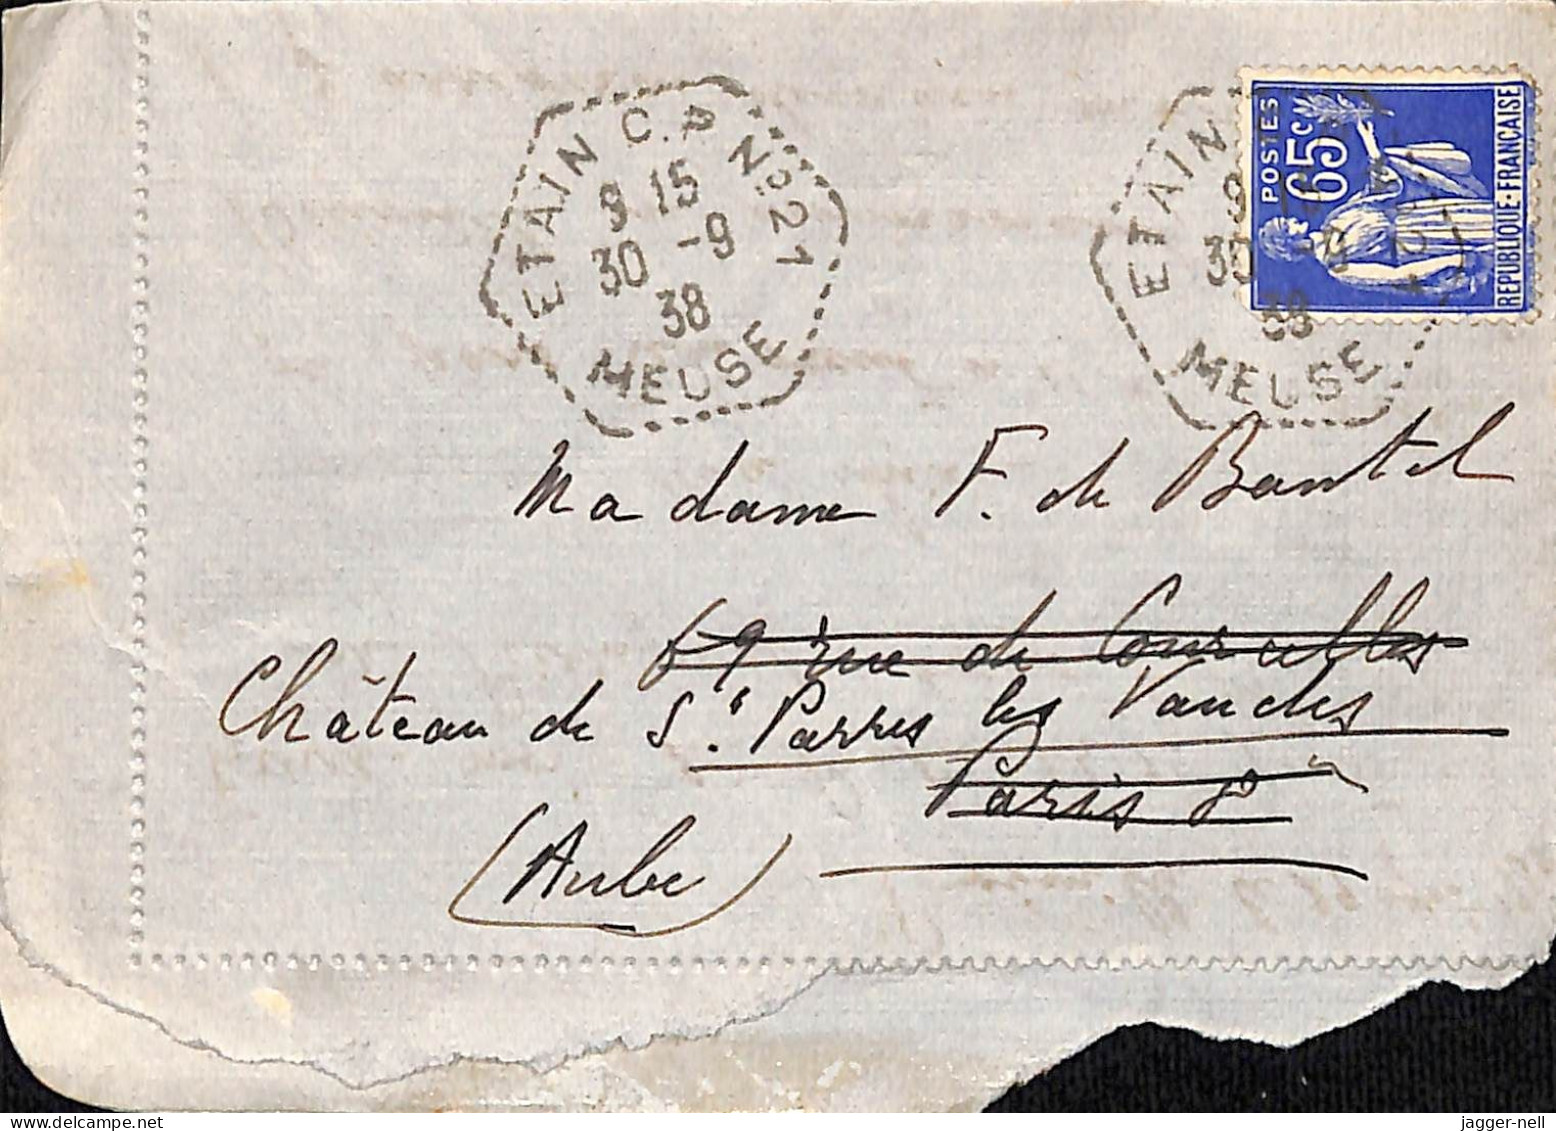 ETAIN C.P N°21
9 15
30 -9
38
MEUSE
ETAIN
9
30
38
MEUSE
POSTES
65c
REPUBLIQUE·FRANÇAISE
Madame F. de Bantel
69 rue de Courcelles
Château de St. Parres les Vaudes
Paris 8e
(Aube)
delcampe.net
jagger-nell